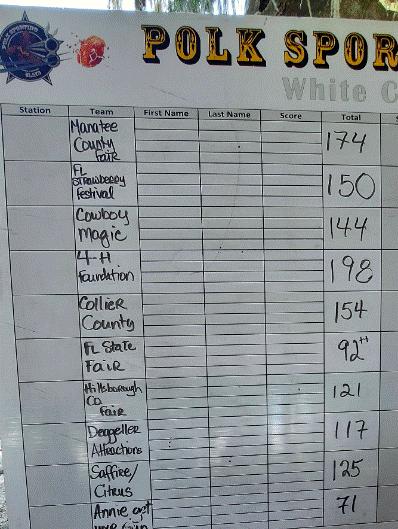 POLK SPOR
White C
Station Team First Name Last Name Score Total
Manatee
County
Fair
174
FL
Strawberry
Festival
150
Cowboy
Magic
144
4-H
Foundation
198
Collier
County
154
FL State
Fair
92
Hillsborough
Co
Fair
121
Deggeller
Attractions
117
Saffire/
Citrus
125
Annie
71